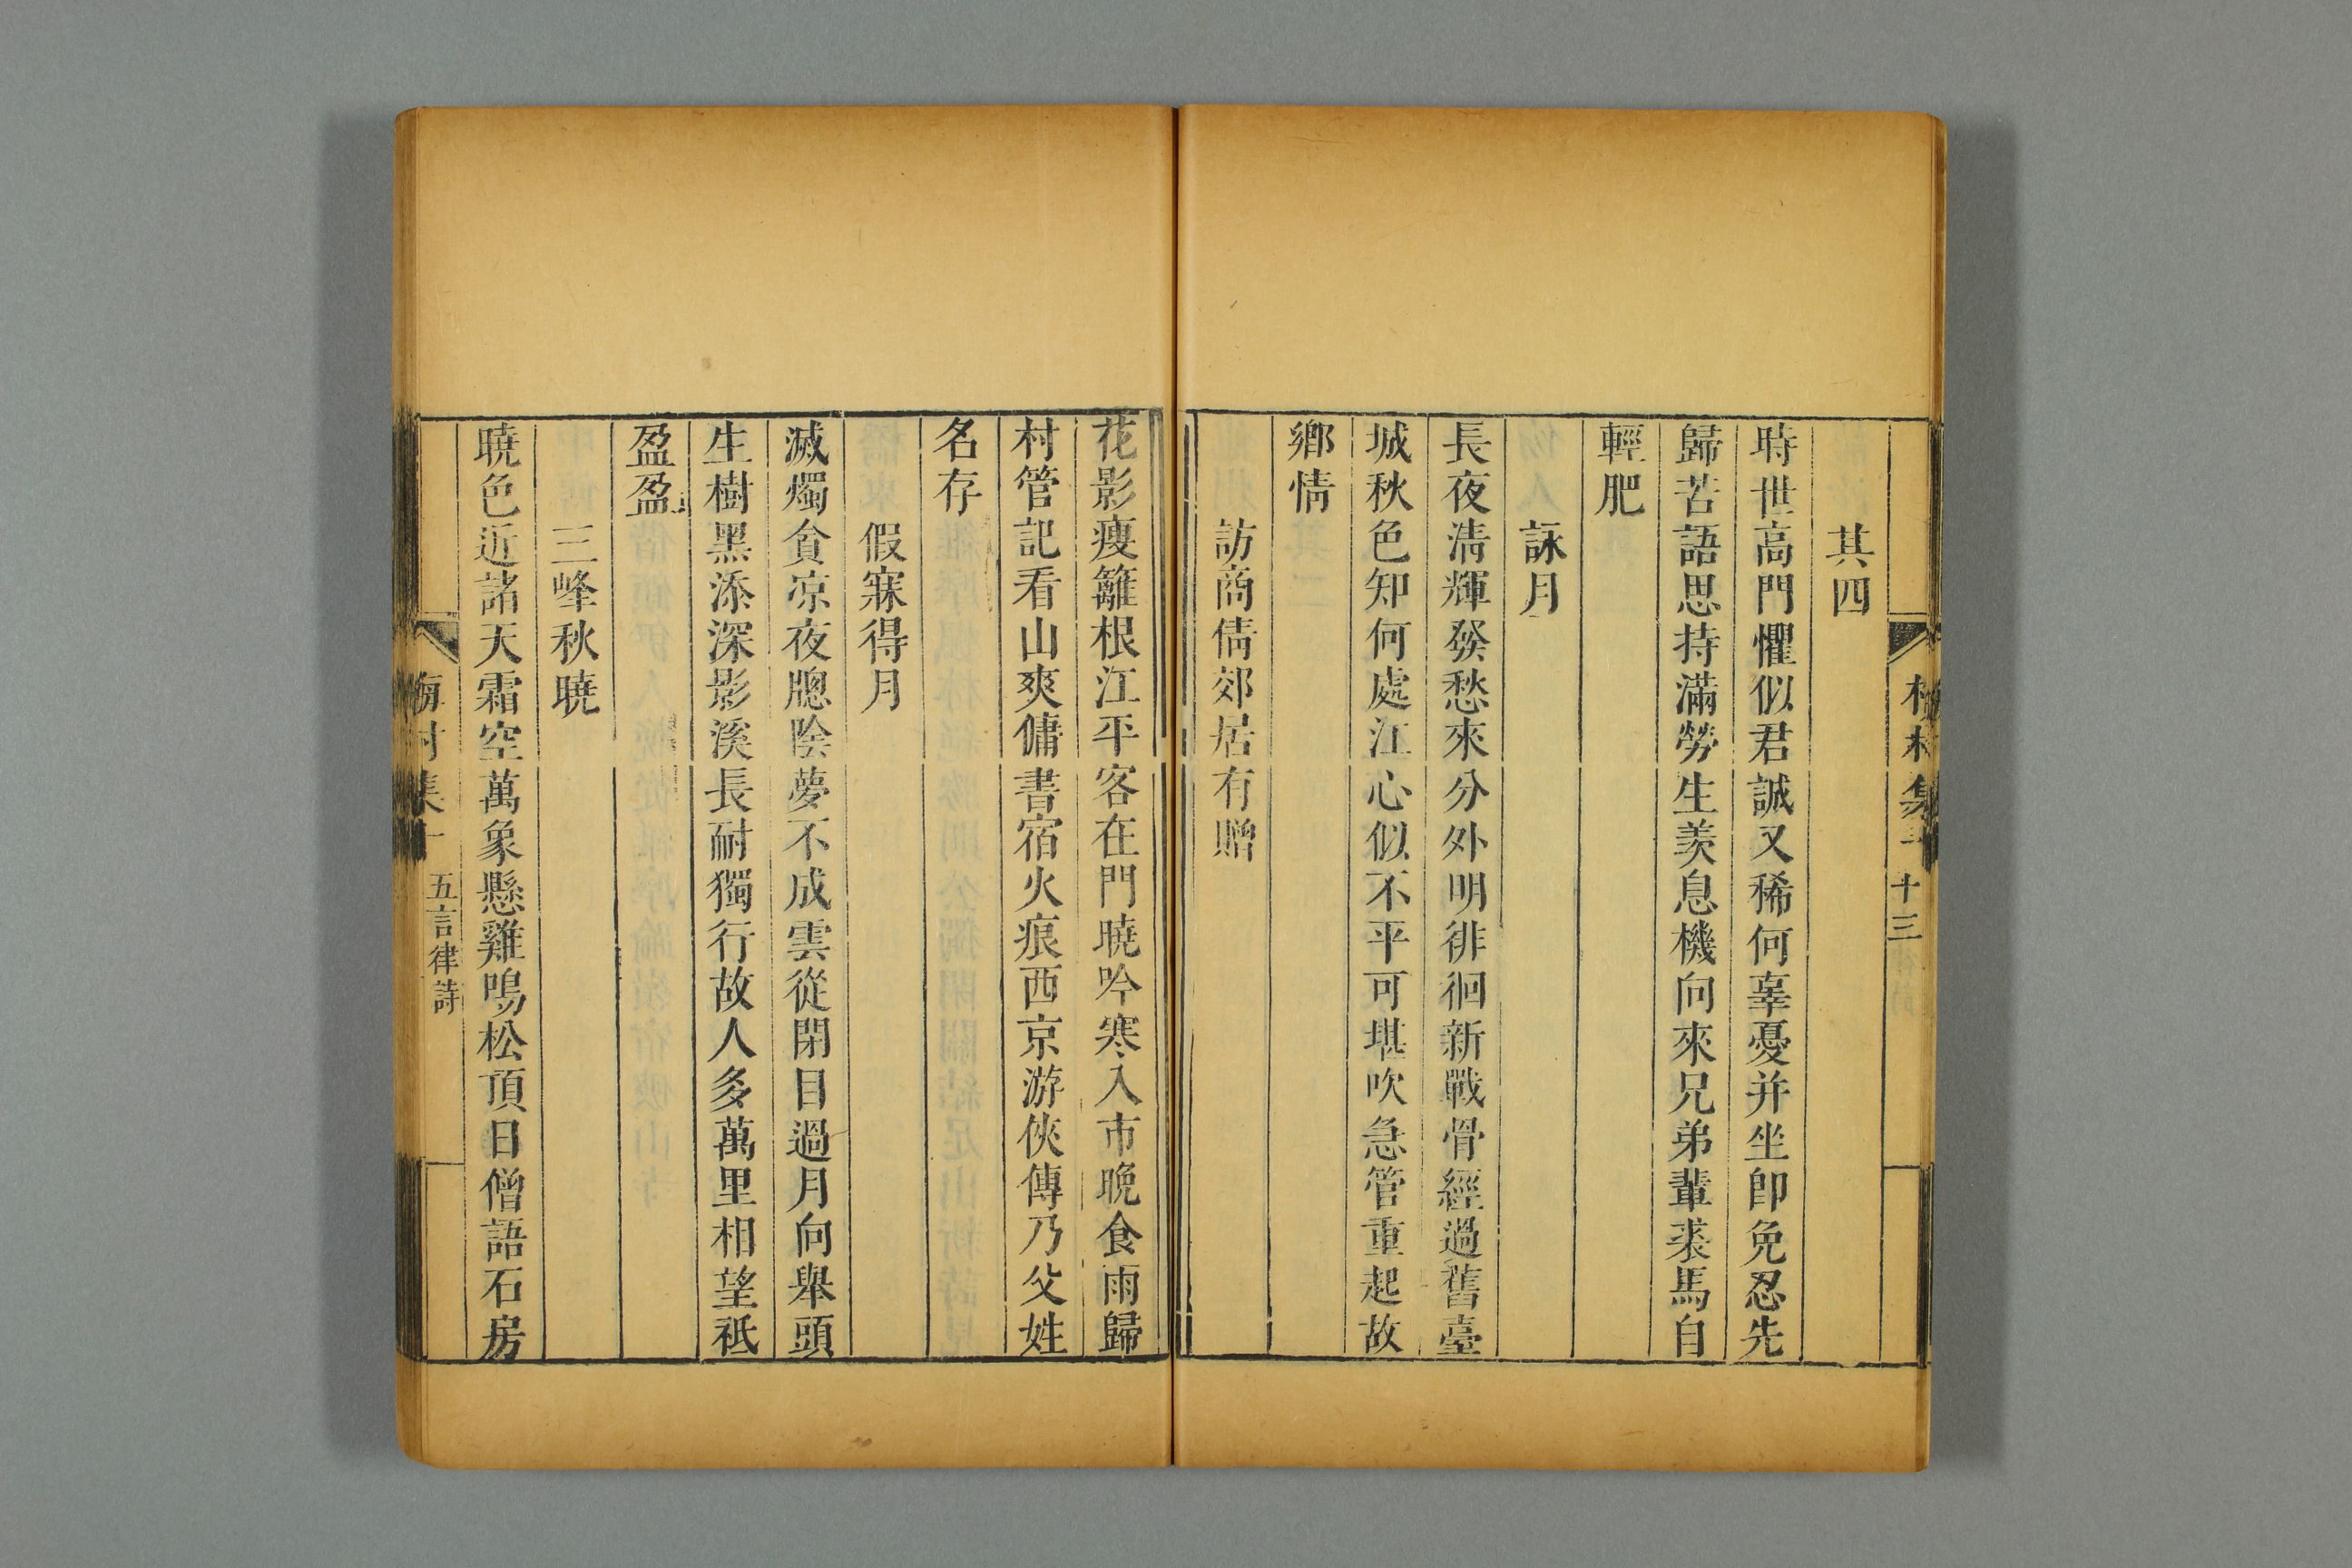 其四
時世高門懼似君誠又稀何辜憂并坐卽免忍先
歸苦語思持滿勞生羨息機向來兄弟輩裘馬自
輕肥
詠月
長夜清輝發愁來分外明徘徊新戰骨經過舊臺
城秋色知何處江心似不平可堪吹急管重起故
鄉情
訪商倩郊居有贈
十三
花影瘦籬根江平客在門曉吟寒入市晚食雨歸
村管記看山爽傭書宿火痕西京游俠傳乃父姓
名存
假寐得月
滅燭貪凉夜牕陰夢不成雲從閉目過月向舉頭
生樹黑添深影溪長耐獨行故人多萬里相望祗
盈盈
三峰秋曉
曉色近諸天霜空萬象懸雞鳴松頂日僧語石房
梅村集十
五言律詩